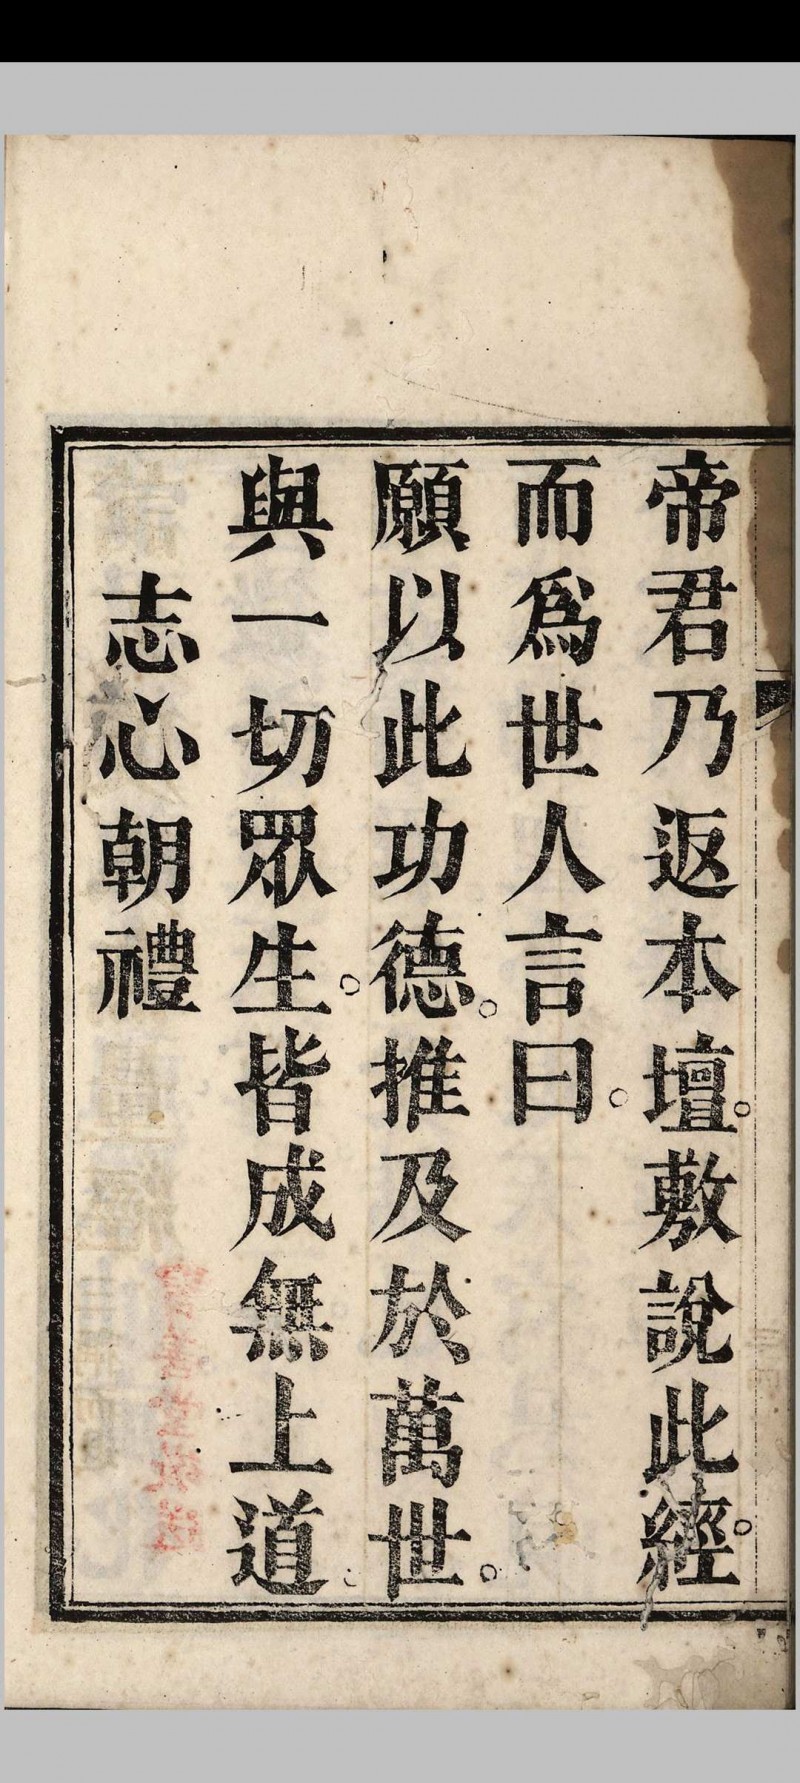 帝君乃返本壇。敷說此經。
而為世人言曰。
願以此功德。推及於萬世。
與一切眾生。皆成無上道。
志心朝禮